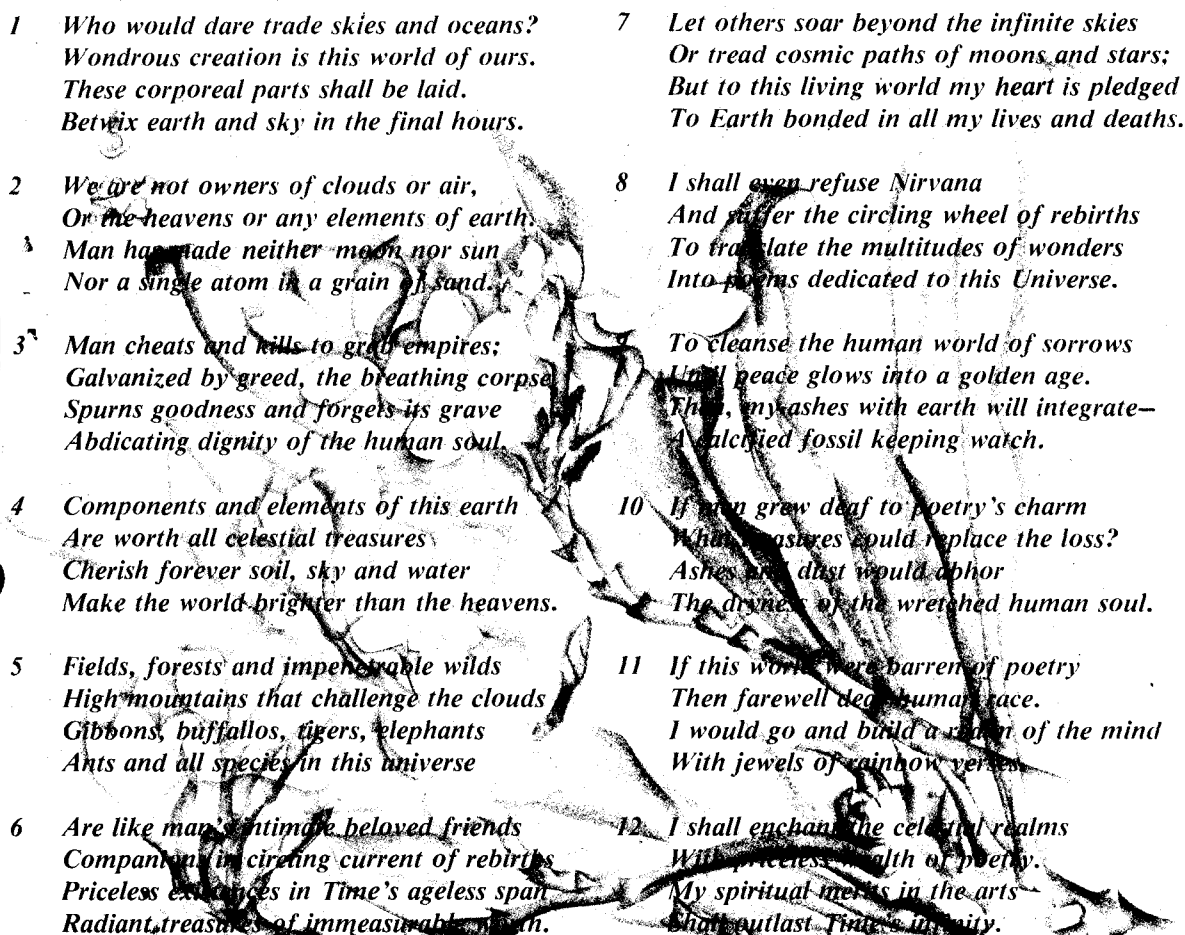 1 Who would dare trade skies and oceans?
Wondrous creation is this world of ours.
These corporeal parts shall be laid.
Betwix earth and sky in the final hours.
2 We are not owners of clouds or air,
Or the heavens or any elements of earth.
Man has made neither moon nor sun
Nor a single atom in a grain of sand.
3 Man cheats and kills to grab empires;
Galvanized by greed, the breathing corpse
Spurns goodness and forgets its grave
Abdicating dignity of the human soul.
4 Components and elements of this earth
Are worth all celestial treasures
Cherish forever soil, sky and water
Make the world brighter than the heavens.
5 Fields, forests and impenetrable wilds
High mountains that challenge the clouds
Gibbons, buffallos, tigers, elephants
Ants and all species in this universe
6 Are like man's intimate beloved friends
Companions in circling current of rebirths
Priceless existences in Time's ageless span
Radiant treasures of immeasurable worth.
7 Let others soar beyond the infinite skies
Or tread cosmic paths of moons and stars;
But to this living world my heart is pledged
To Earth bonded in all my lives and deaths.
8 I shall even refuse Nirvana
And suffer the circling wheel of rebirths
To translate the multitudes of wonders
Into poems dedicated to this Universe.
9 To cleanse the human world of sorrows
Until peace glows into a golden age.
Then, my ashes with earth will integrate—
A calcified fossil keeping watch.
10 If man grew deaf to poetry's charm
What treasures could replace the loss?
Ashes and dust would abhor
The dryness of the wretched human soul.
11 If this world were barren of poetry
Then farewell dear human race.
I would go and build a realm of the mind
With jewels of rainbow verses.
12 I shall enchant the celestial realms
With priceless wealth of poetry.
My spiritual merits in the arts
Shall outlast Time's infinity.